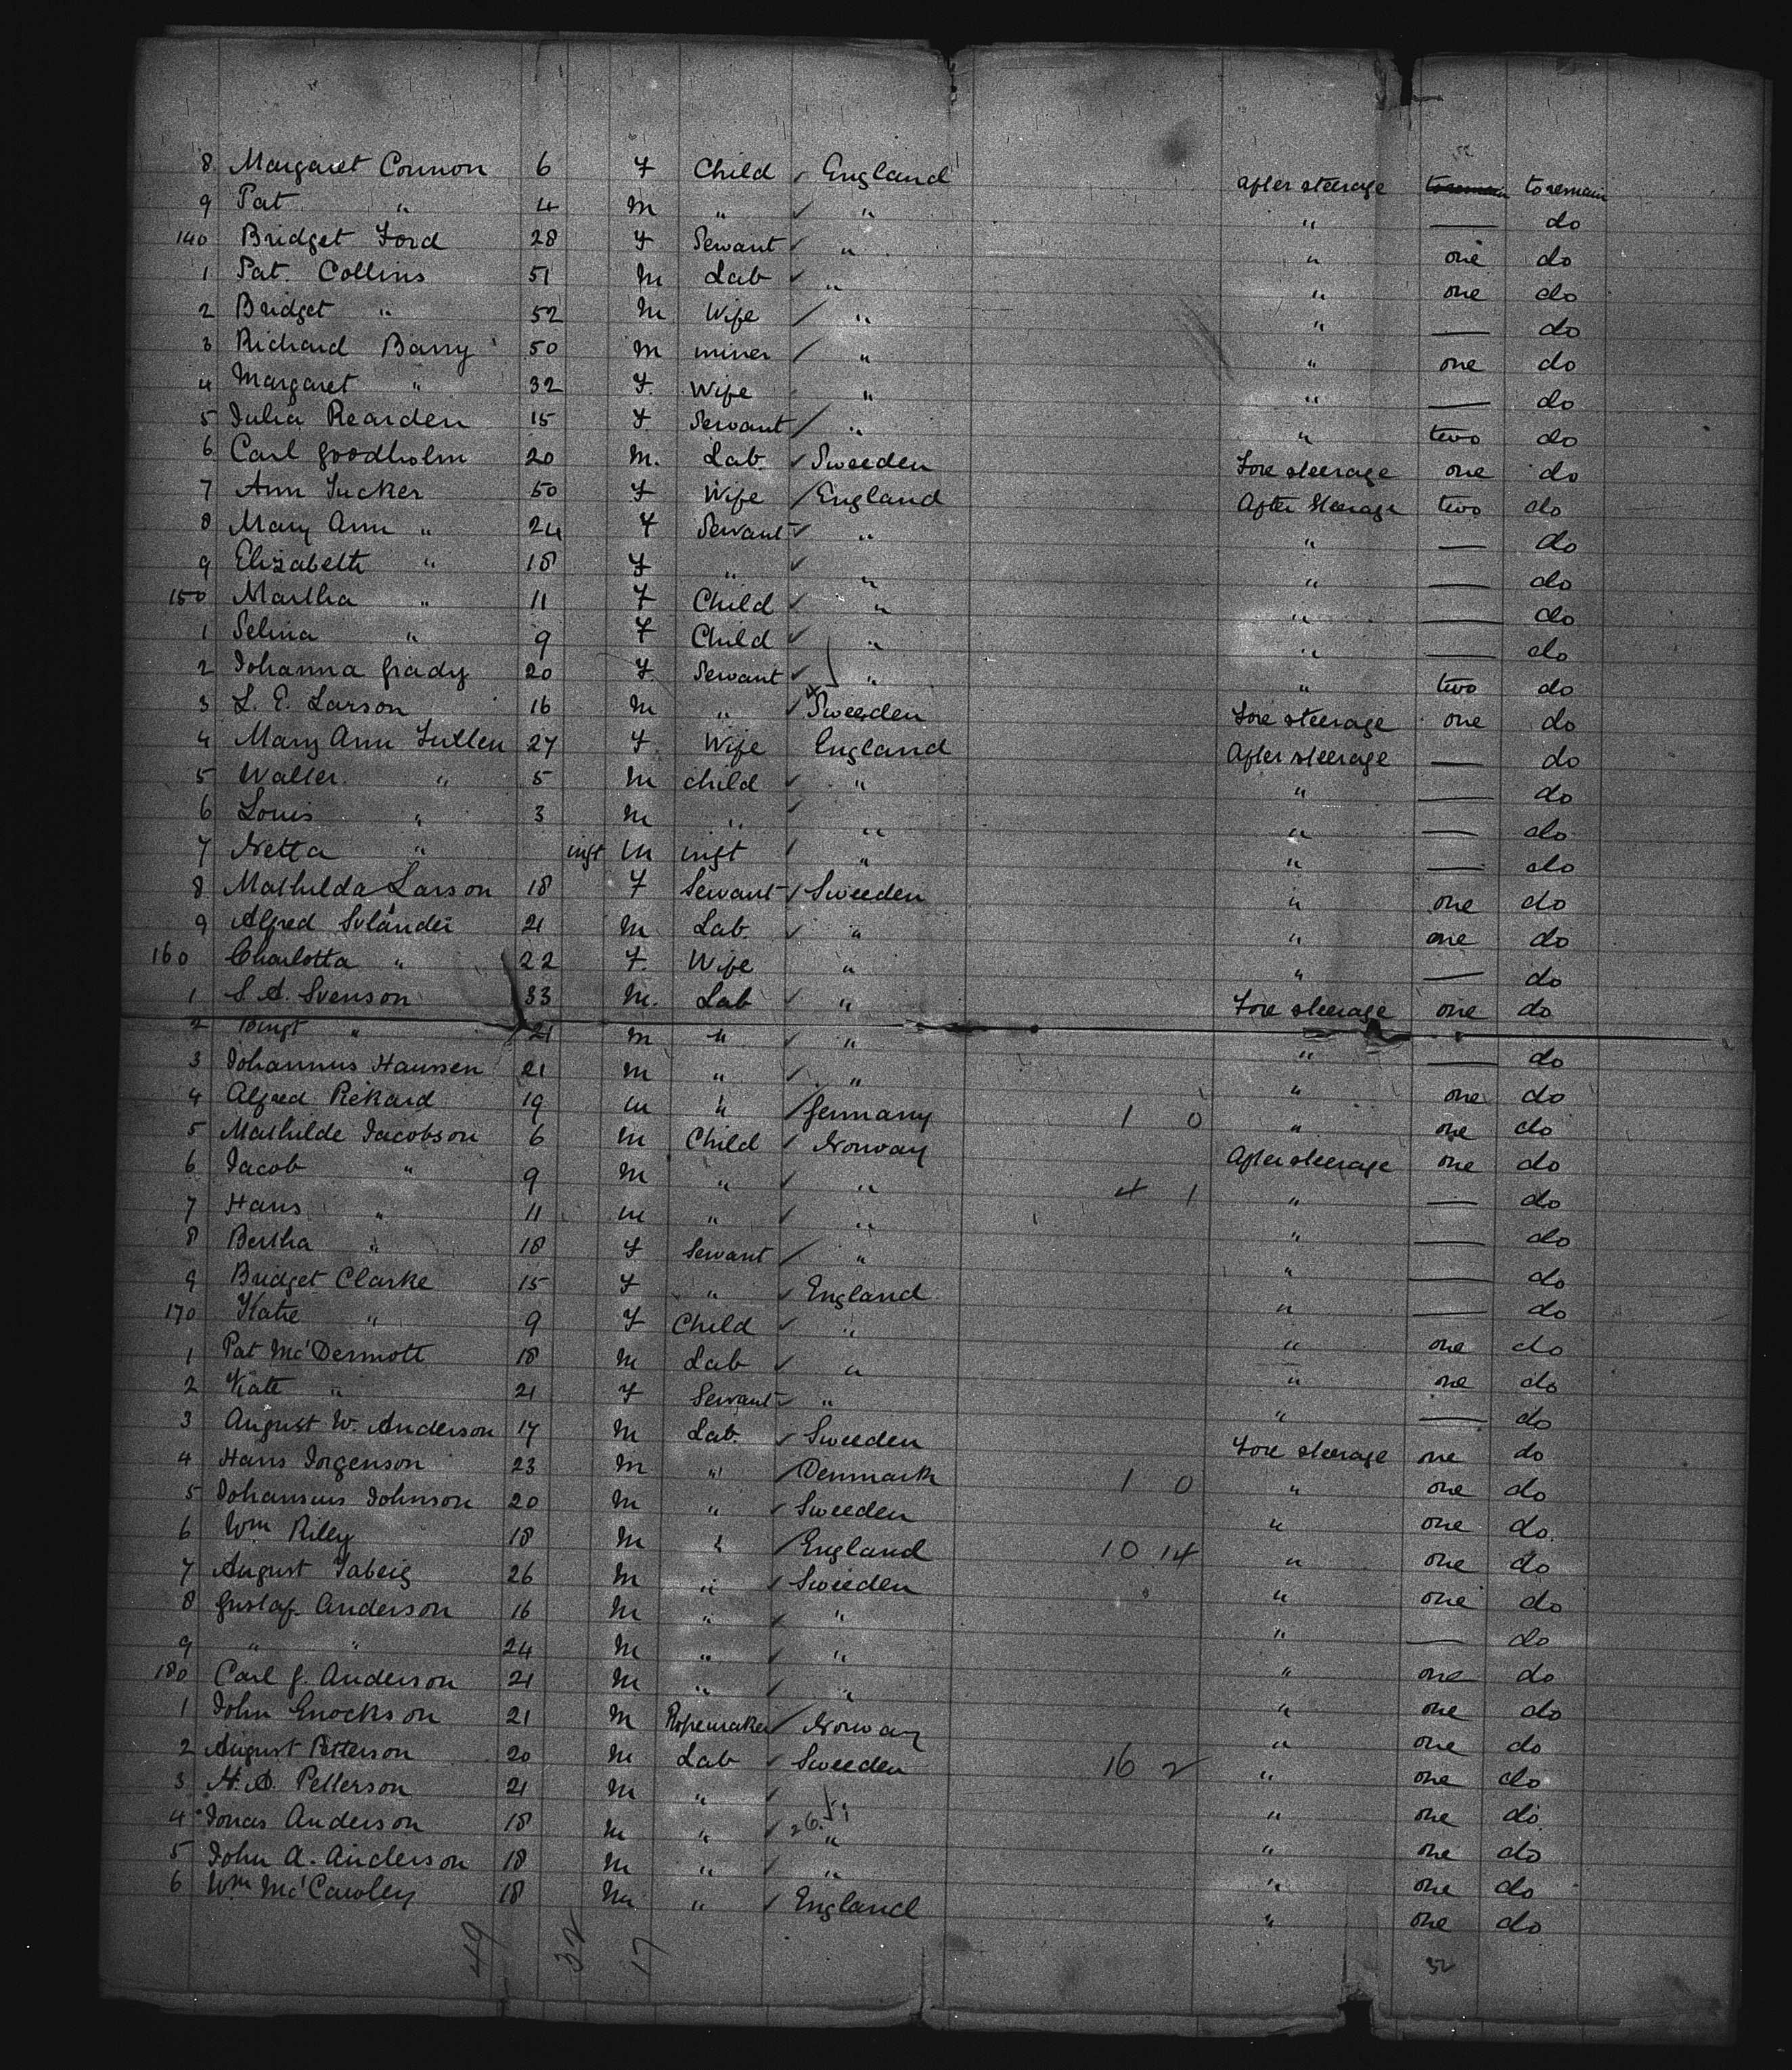 8 Margaret Connon 6 F Child ✓ England After steerage to remain to remain
9 Pat " 4 M " ✓ " " — do
140 Bridget Ford 28 F Servant ✓ " " one do
1 Pat. Collins 51 M Lab ✓ " " one do
2 Bridget " 52 M Wife / " " — do
3 Richard Barry 50 M miner / " " one do
4 Margaret " 32 F. Wife " " — do
5 Julia Rearden 15 F Servant / " " two do
6 Carl Goodholm 20 M. Lab. ✓ Sweeden Fore steerage one do
7 Ann Tucker 50 F Wife / England After Steerage two do
8 Mary Ann " 24 F Servant ✓ " " — do
9 Elizabeth " 18 F " ✓ " " — do
150 Martha " 11 F Child ✓ " " — do
1 Selina " 9 F Child ✓ " " — do
2 Johanna Grady 20 F Servant ✓ " " two do
3 L. E. Larson 16 M " ✓ Sweeden Fore steerage one do
4 Mary Ann Fullen 27 F. Wife England After steerage — do
5 Walter " 5 M child ✓ " " — do
6 Louis " 3 M " ✓ " " — do
7 Netta " inft M inft ✓ " " — do
8 Mathilda Larson 18 F Servant ✓ Sweeden " one do
9 Alfred 21 M Lab. ✓ " " one do
160 Charlotta " 22 F. Wife " " — do
1 S. A. Svenson 33 M. Lab ✓ " Fore steerage one do
2 " 21 M " ✓ " " — do
3 Johannus Hanssen 21 M " ✓ " " one do
4 Alfred Rekard 19 M " / Germany 1 0 " one do
5 Mathilde Jacobson 6 M Child ✓ Norway After steerage one do
6 Jacob " 9 M " ✓ " 4 1 " — do
7 Hans " 11 M " ✓ " " — do
8 Bertha " 18 F Servant / " " — do
9 Bridget Clarke 15 F " ✓ England " — do
170 Katie " 9 F Child ✓ " " one do
1 Pat McDermott 18 M Lab ✓ " " one do
2 Kate " 21 F Servant ✓ " " — do
3 August W. Anderson 17 M Lab. ✓ Sweeden Fore steerage one do
4 Hans Jorgenson 23 M " / Denmark 1 0 " one do
5 Johannus Johnson 20 M " ✓ Sweeden " one do
6 Wm Riley 18 M " / England 10 14 " one do
7 August 26 M " ✓ Sweeden " one do
8 Gustaf Anderson 16 M " ✓ " " — do
9 " " 24 M " ✓ " " one do
180 Carl G. Anderson 21 M " ✓ " " one do
1 John Enockson 21 M Ropemaker ✓ Norway " one do
2 August Petterson 20 M Lab ✓ Sweeden 16 2 " one do
3 A. Petterson 21 M " ✓ " " one do
4 Jonas Anderson 18 M " ✓ 26 " " one do
5 John A. Anderson 18 M " ✓ " " one do
6 Wm McCawley 18 M " ✓ England " one do
49 32 17 32